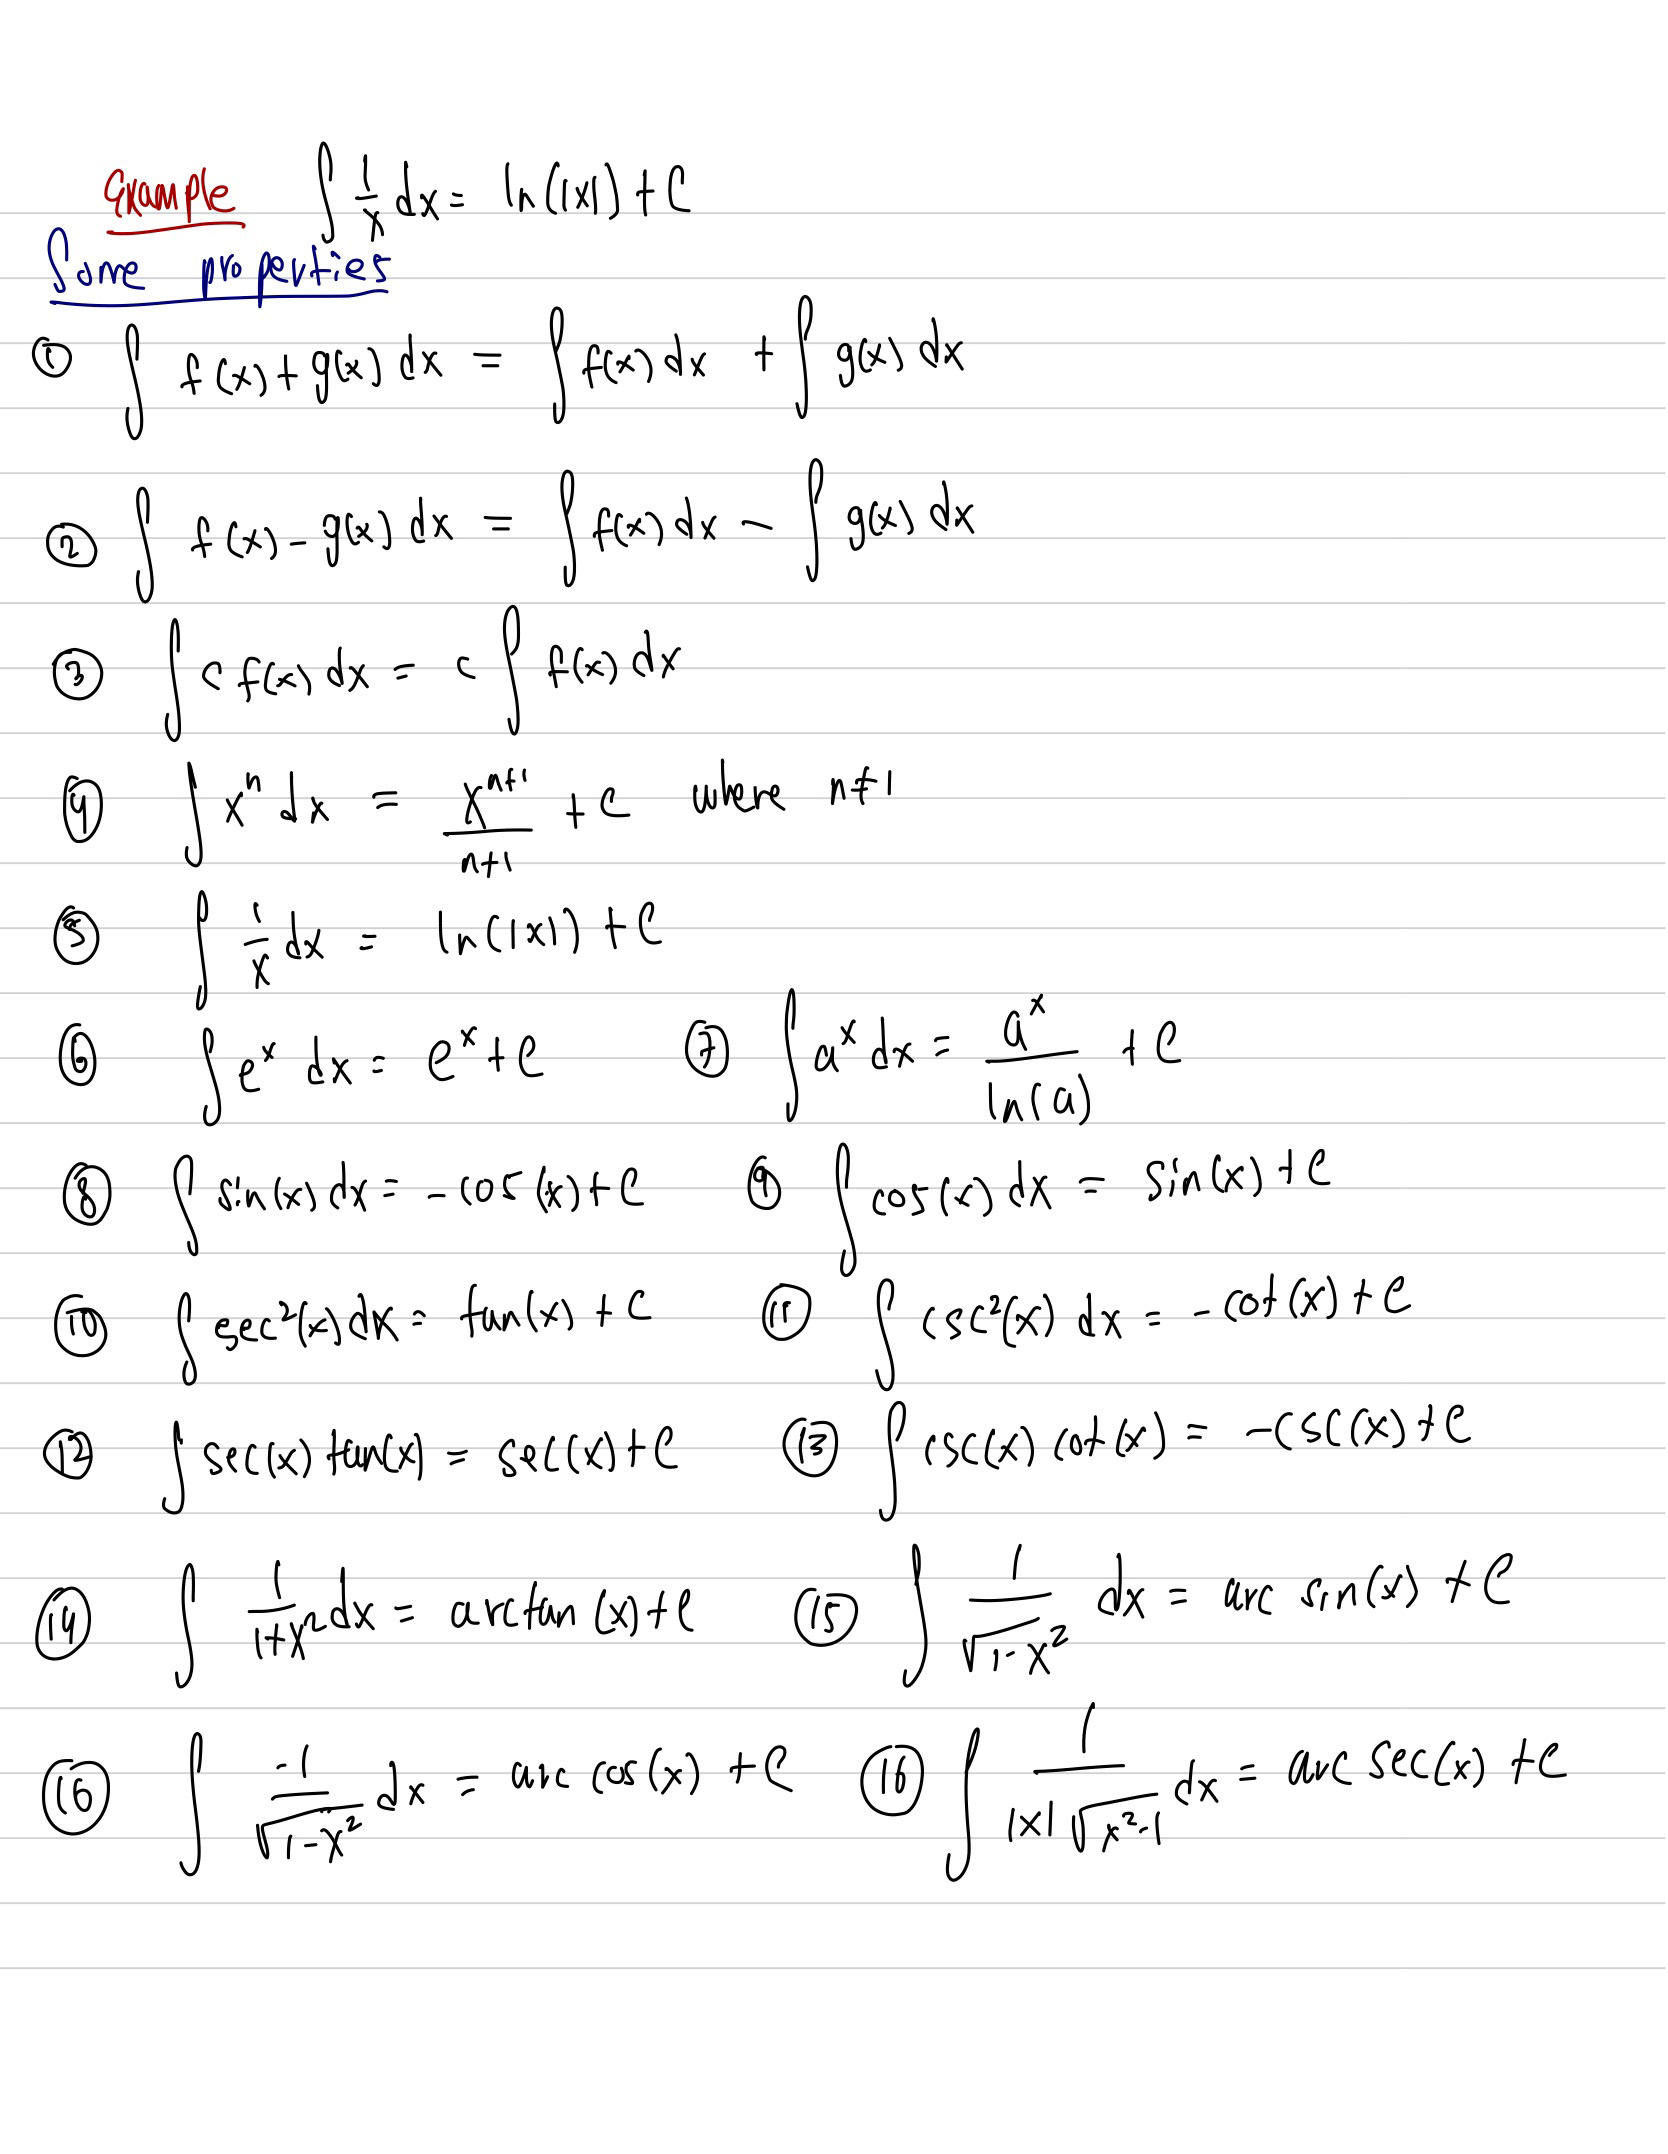 Example ∫ 1/x dx = ln(|x|) + C
Some properties
① ∫ f(x) + g(x) dx = ∫ f(x) dx + ∫ g(x) dx
② ∫ f(x) - g(x) dx = ∫ f(x) dx - ∫ g(x) dx
③ ∫ c f(x) dx = c ∫ f(x) dx
④ ∫ xⁿ dx = xⁿ⁺¹/(n+1) + C where n≠1
⑤ ∫ 1/x dx = ln(|x|) + C
⑥ ∫ eˣ dx = eˣ + C ⑦ ∫ aˣ dx = aˣ/ln(a) + C
⑧ ∫ sin(x) dx = -cos(x) + C ⑨ ∫ cos(x) dx = sin(x) + C
⑩ ∫ sec²(x) dx = tan(x) + C ⑪ ∫ csc²(x) dx = -cot(x) + C
⑫ ∫ sec(x) tan(x) = sec(x) + C ⑬ ∫ csc(x) cot(x) = -csc(x) + C
⑭ ∫ 1/(1+x²) dx = arctan(x) + C ⑮ ∫ 1/√(1-x²) dx = arc sin(x) + C
⑯ ∫ -1/√(1-x²) dx = arc cos(x) + C ⑯ ∫ 1/(|x|√(x²-1)) dx = arc sec(x) + C